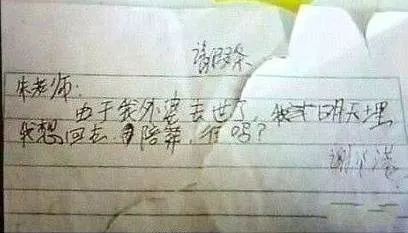 请假条
朱老师:
由于我外婆去世了,我才明天埋
我想回去陪葬,行吗?
谢